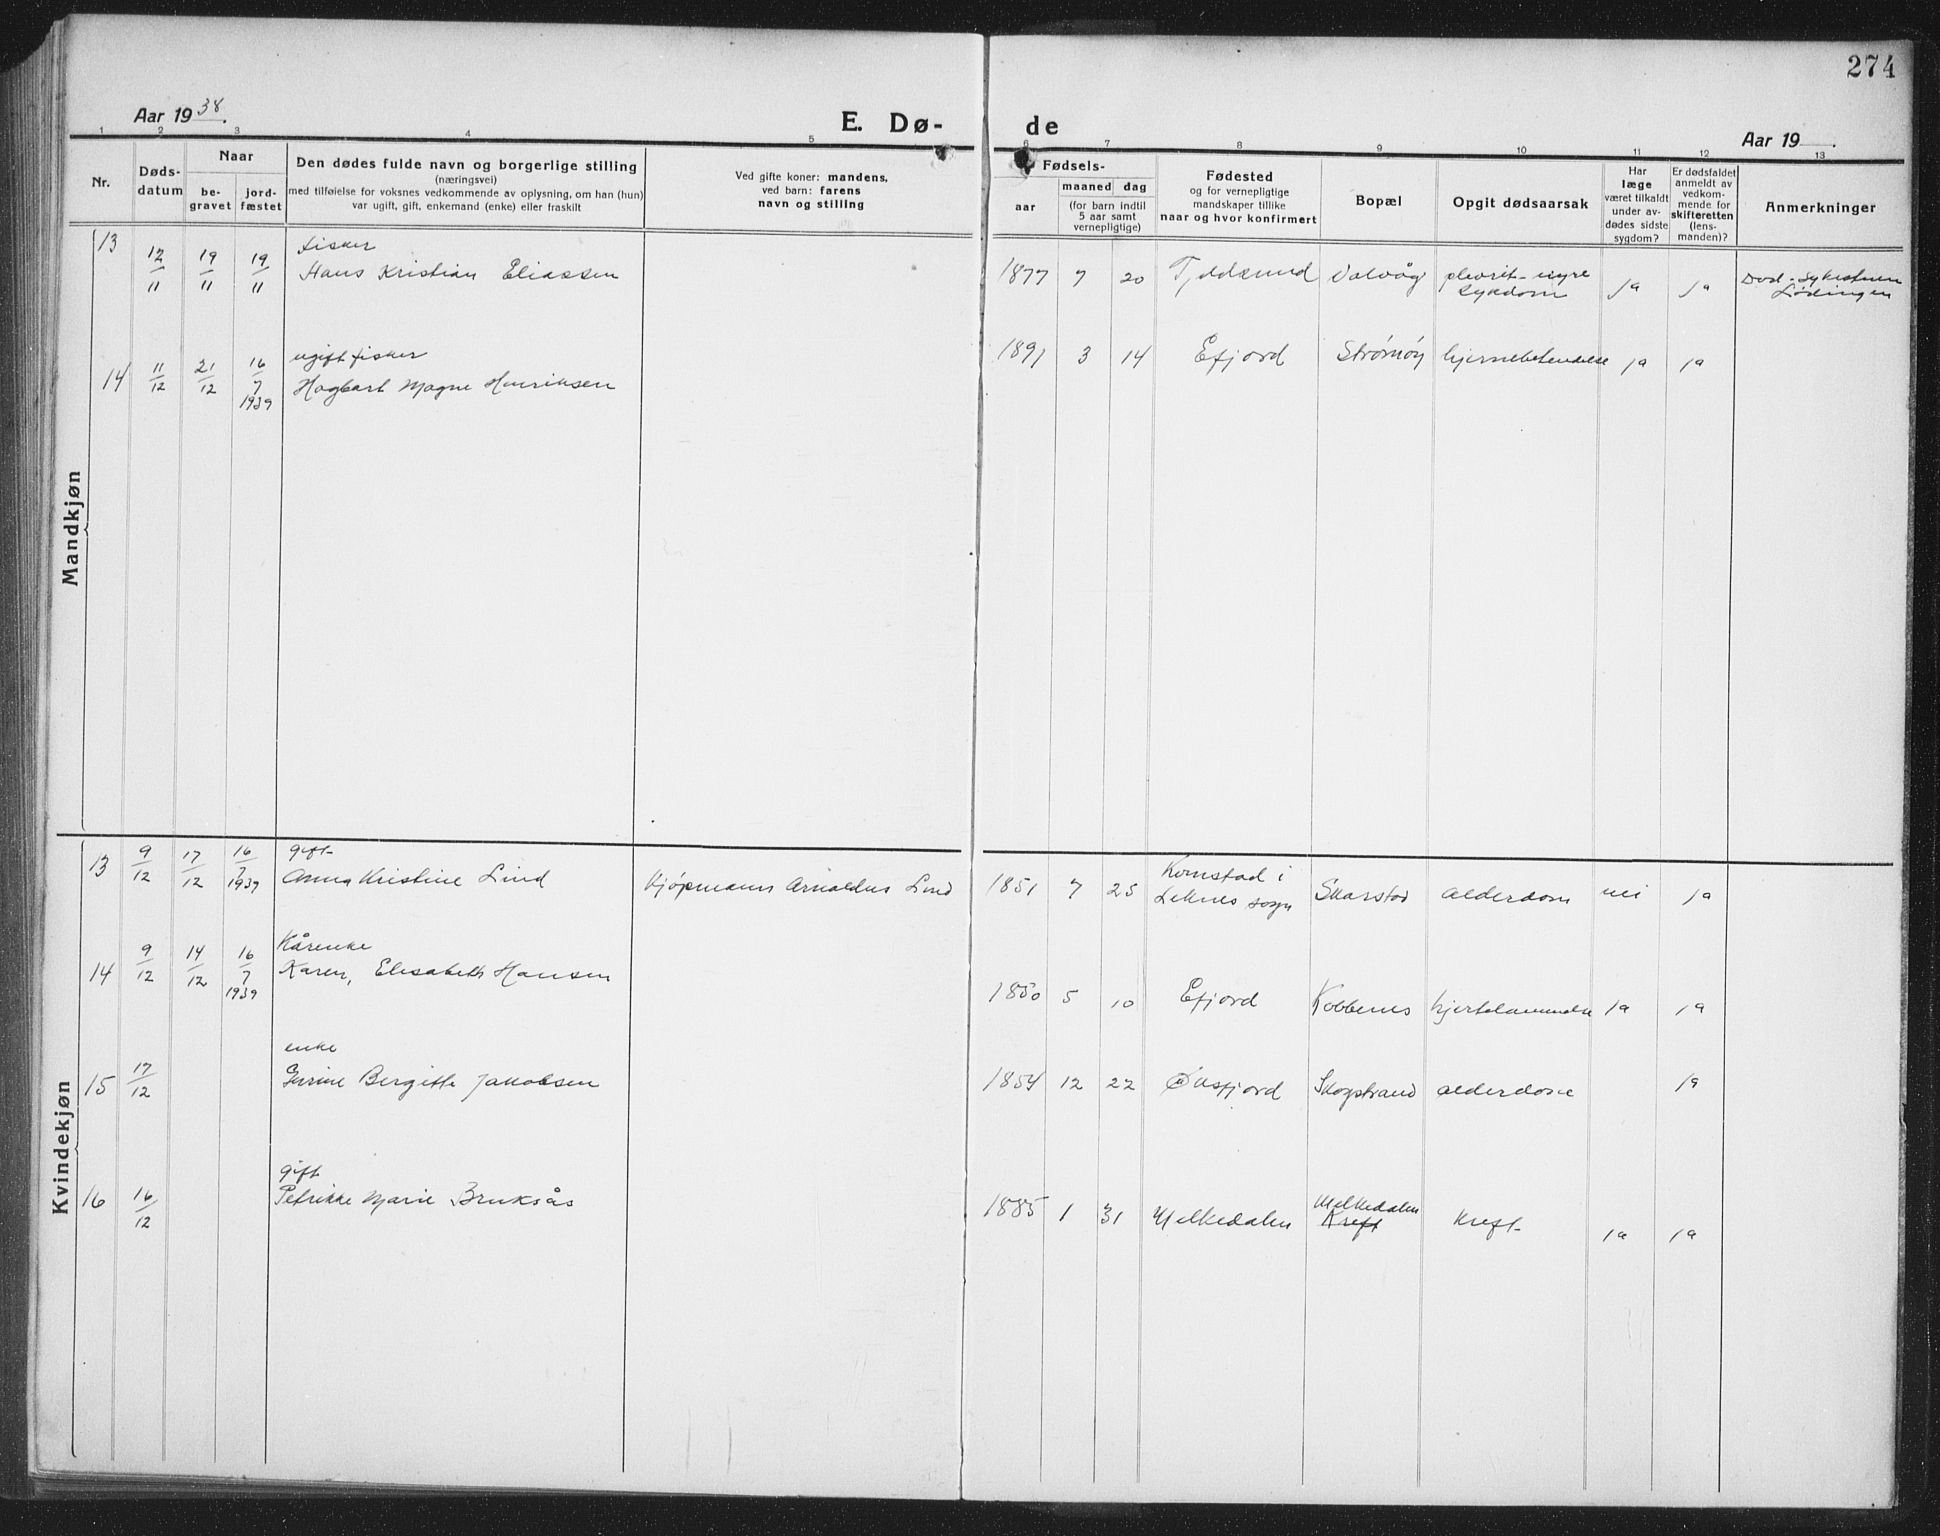 274
Aar 1938.
E. Dø-
de
Aar 19 .
1 2 3 4 5 6 7 8 9 10 11 12 13
Nr.
Døds-
datum
Naar
be-
gravet
jord-
fæstet
Den dødes fulde navn og borgerlige stilling
(næringsvei)
med tilføielse for voksnes vedkommende av oplysning, om han (hun)
var ugift, gift, enkemand (enke) eller fraskilt
Ved gifte koner: mandens,
ved barn: farens
navn og stilling
Fødsels-
aar
maaned dag
(for barn indtil
5 aar samt
vernepligtige)
Fødested
og for vernepligtige
mandskaper tillike
naar og hvor konfirmert
Bopæl
Opgit dødsaarsak
Har
læge
været tilkaldt
under av-
dødes sidste
sygdom?
Er dødsfaldet
anmeldt av
vedkom-
mende for
skifteretten
(lens-
manden)?
Anmerkninger
Mandkjøn
13 12/11 19/11 19/11 fisker
Hans Kristian Eliassen
1877 7 20 Tjeldsund Valvåg plevrit-nyre
sykdom ja ja Død. Sykestuen
Lødingen
14 11/12 21/12 16/7 1939 ugift fisker
Hagbart Magne Henriksen
1891 3 14 Efjord Strømøy hjernebetendelse ja ja
Kvindekjøn
13 9/12 17/12 16/7 1939 gift
Anna Kristine Lind Kjøpmann Arnoldus Lind
1851 7 25 Komstad i
Leknes sogn Skarstad alderdom nei ja
14 9/12 14/12 16/7 1939 Kårenke
Karen, Elisabeth Hansen
1850 5 10 Efjord Kobbenes hjertelammelse ja ja
15 17/12 enke
Bergitte Jakobsen
1854 12 22 Øksfjord Skogstrand alderdom ja
16 16/12 gift
Petrikke Marie Bruksås
1885 1 31 Melkedalen Melkedalen
Kreft kreft ja ja